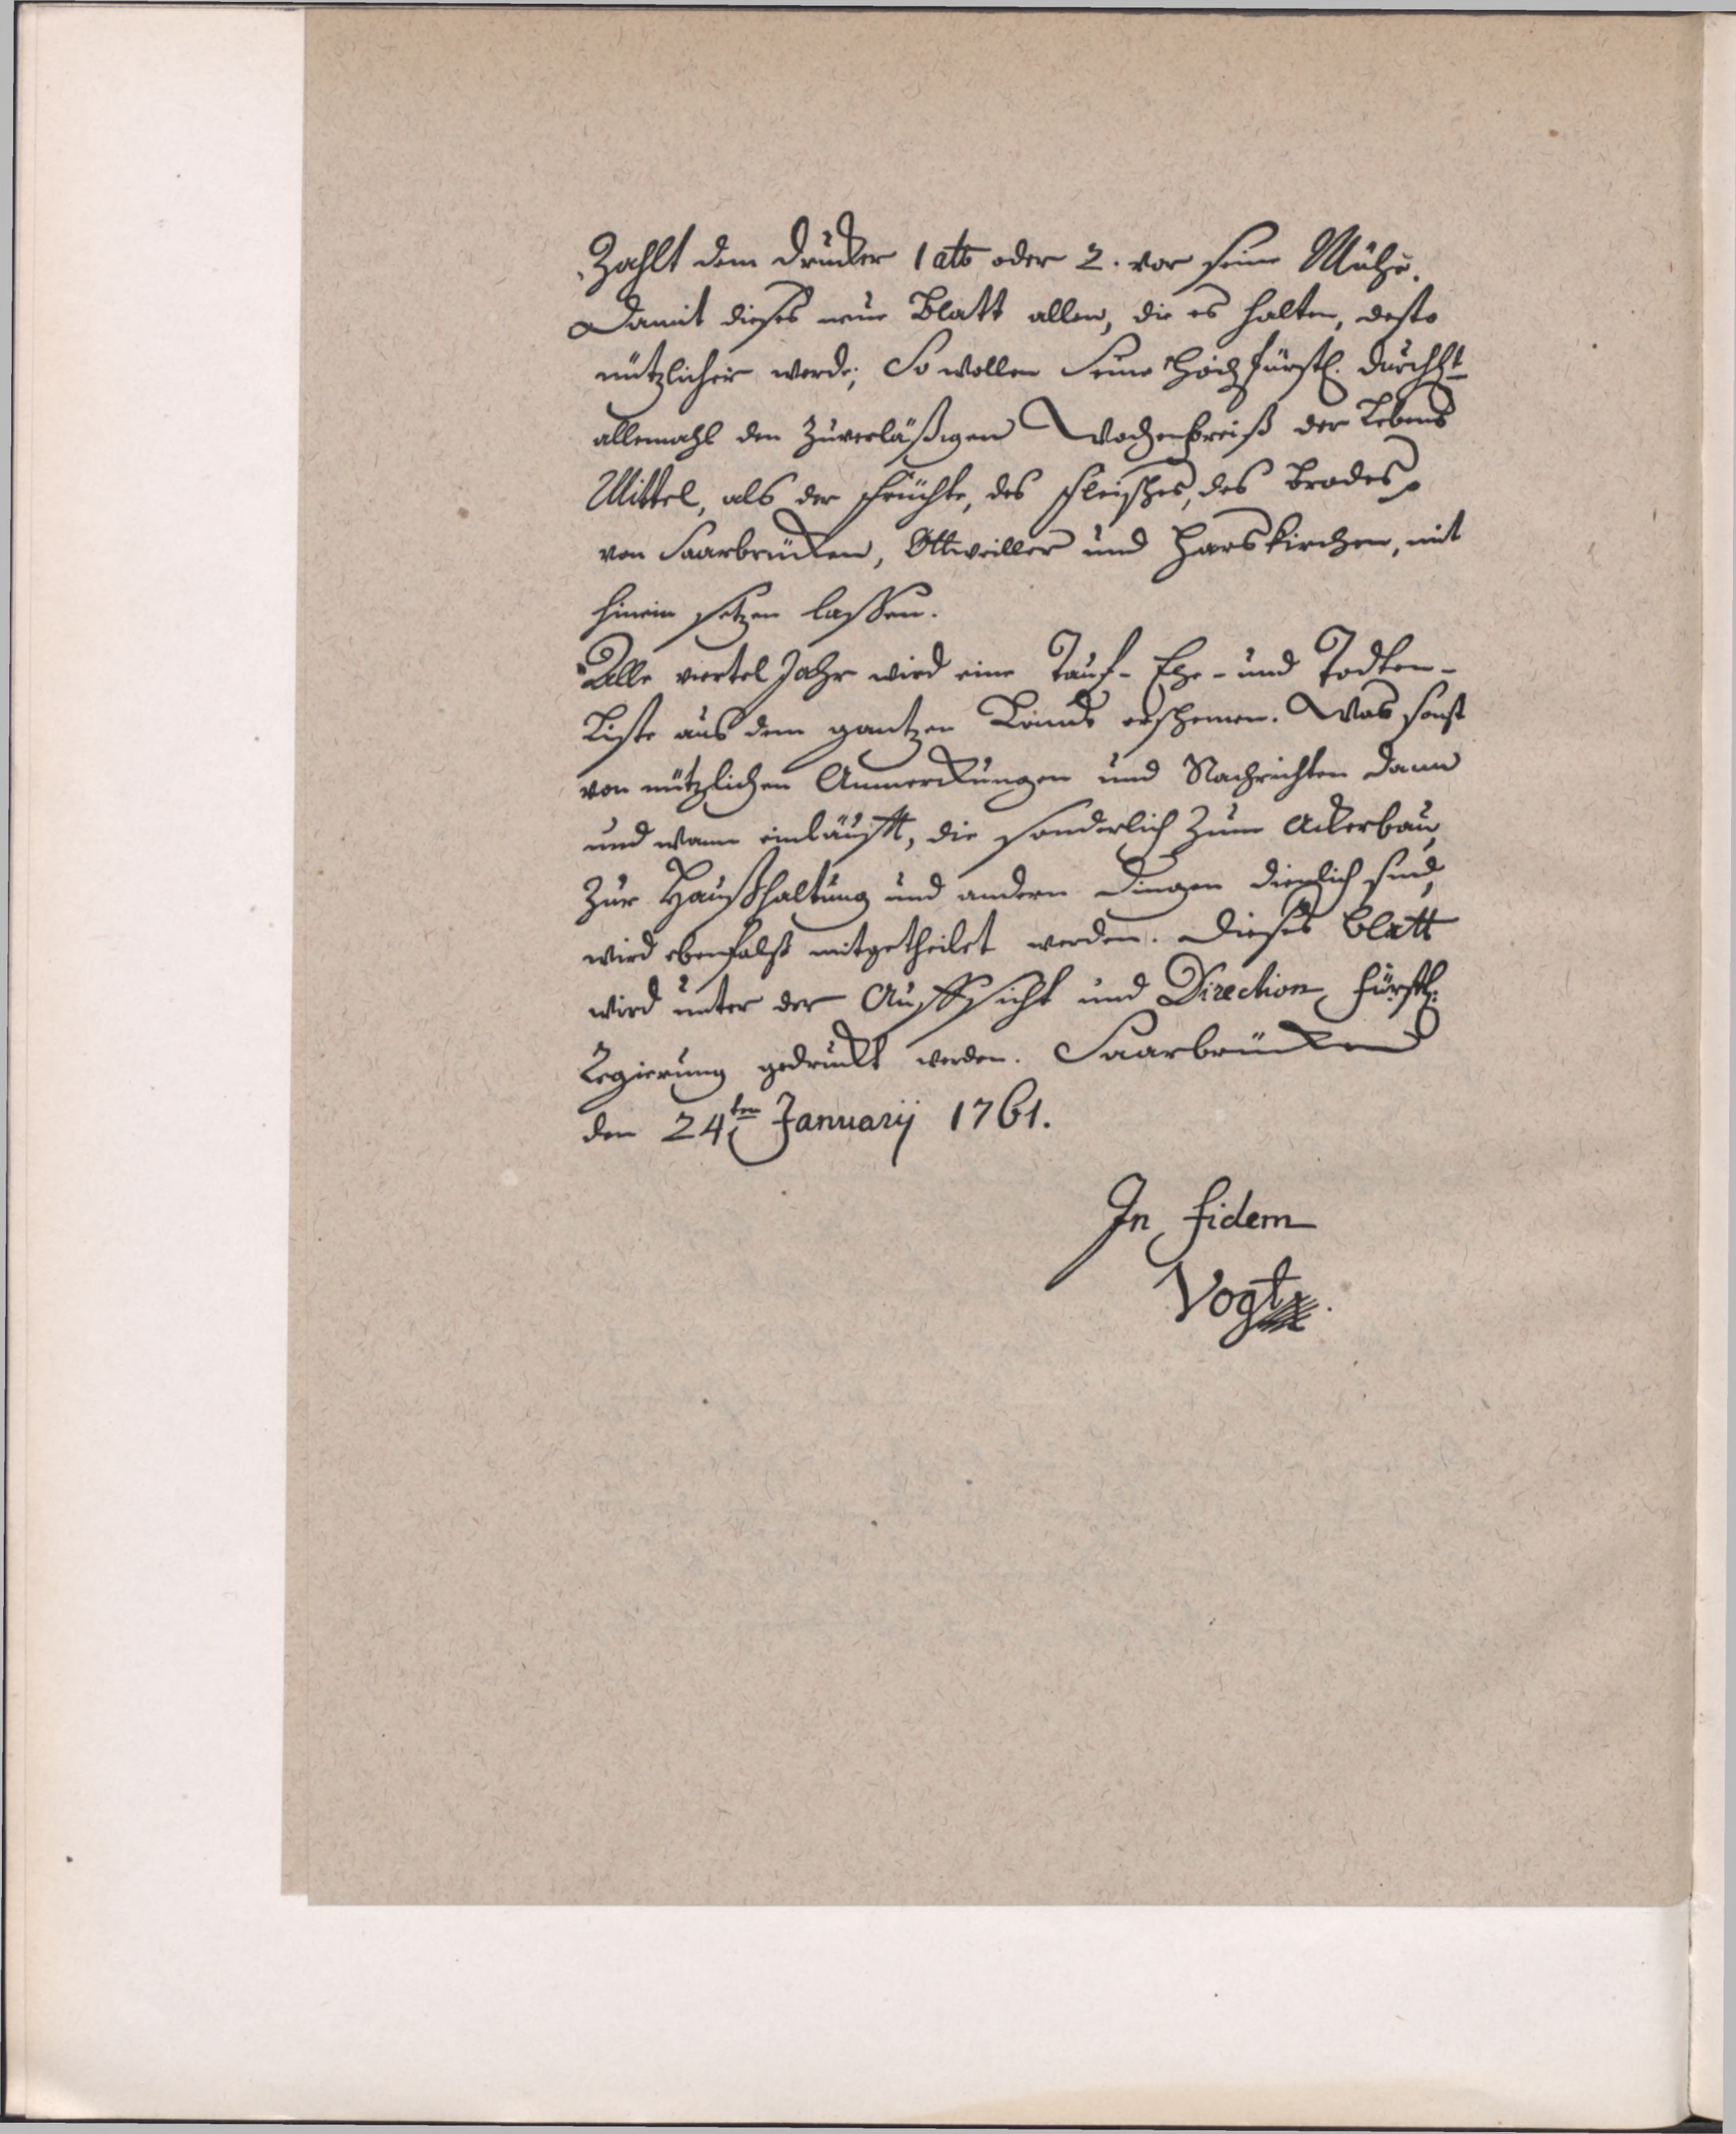 Zahlt dem Drucker 1 atb oder 2. vor seine Mühe.
Damit dieses neue Blatt allen, die es halten, desto
nützlicher werde; So wollen Seine Hochfürstl. Durchlt
allemahl den zuverläßigen Wochenpreiß der Lebens
Mittel, als der Früchte, des Fleisches, des Brodes
von Saarbrücken, Ottweiller und Harskirchen, mit
hinein setzen lassen.
Alle viertel Jahr wird eine Tauf- Ehe- und Todten-
Liste aus dem gantzen Lande erscheinen. Was sonst
von nützlichen Anmerckungen und Nachrichten dann
und wann einläufft, die sonderlich zum Ackerbau,
zur Haußhaltung und andern Dingen dienlich sind,
wird ebenfalß mitgetheilet werden. Dieses Blatt
wird unter der Auffsicht und Direction Fürstl:
Regierung gedruckt werden. Saarbrücken
den 24ten Januarij 1761.
In fidem
Vogt